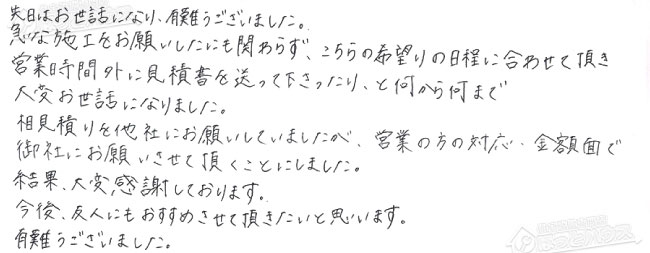 先日はお世話になり、有難うございました。
急な施工をお願いしたにも関わらず、こちらの希望りの日程に合わせて頂き
営業時間外に見積書を送って下さったり、と何から何まで
大変お世話になりました。
相見積りを他社にお願いしていましたが、営業の方の対応・金額面で
御社にお願いさせて頂くことにしました。
結果、大変感謝しております。
今後、友人にもおすすめさせて頂きたいと思います。
有難うございました。